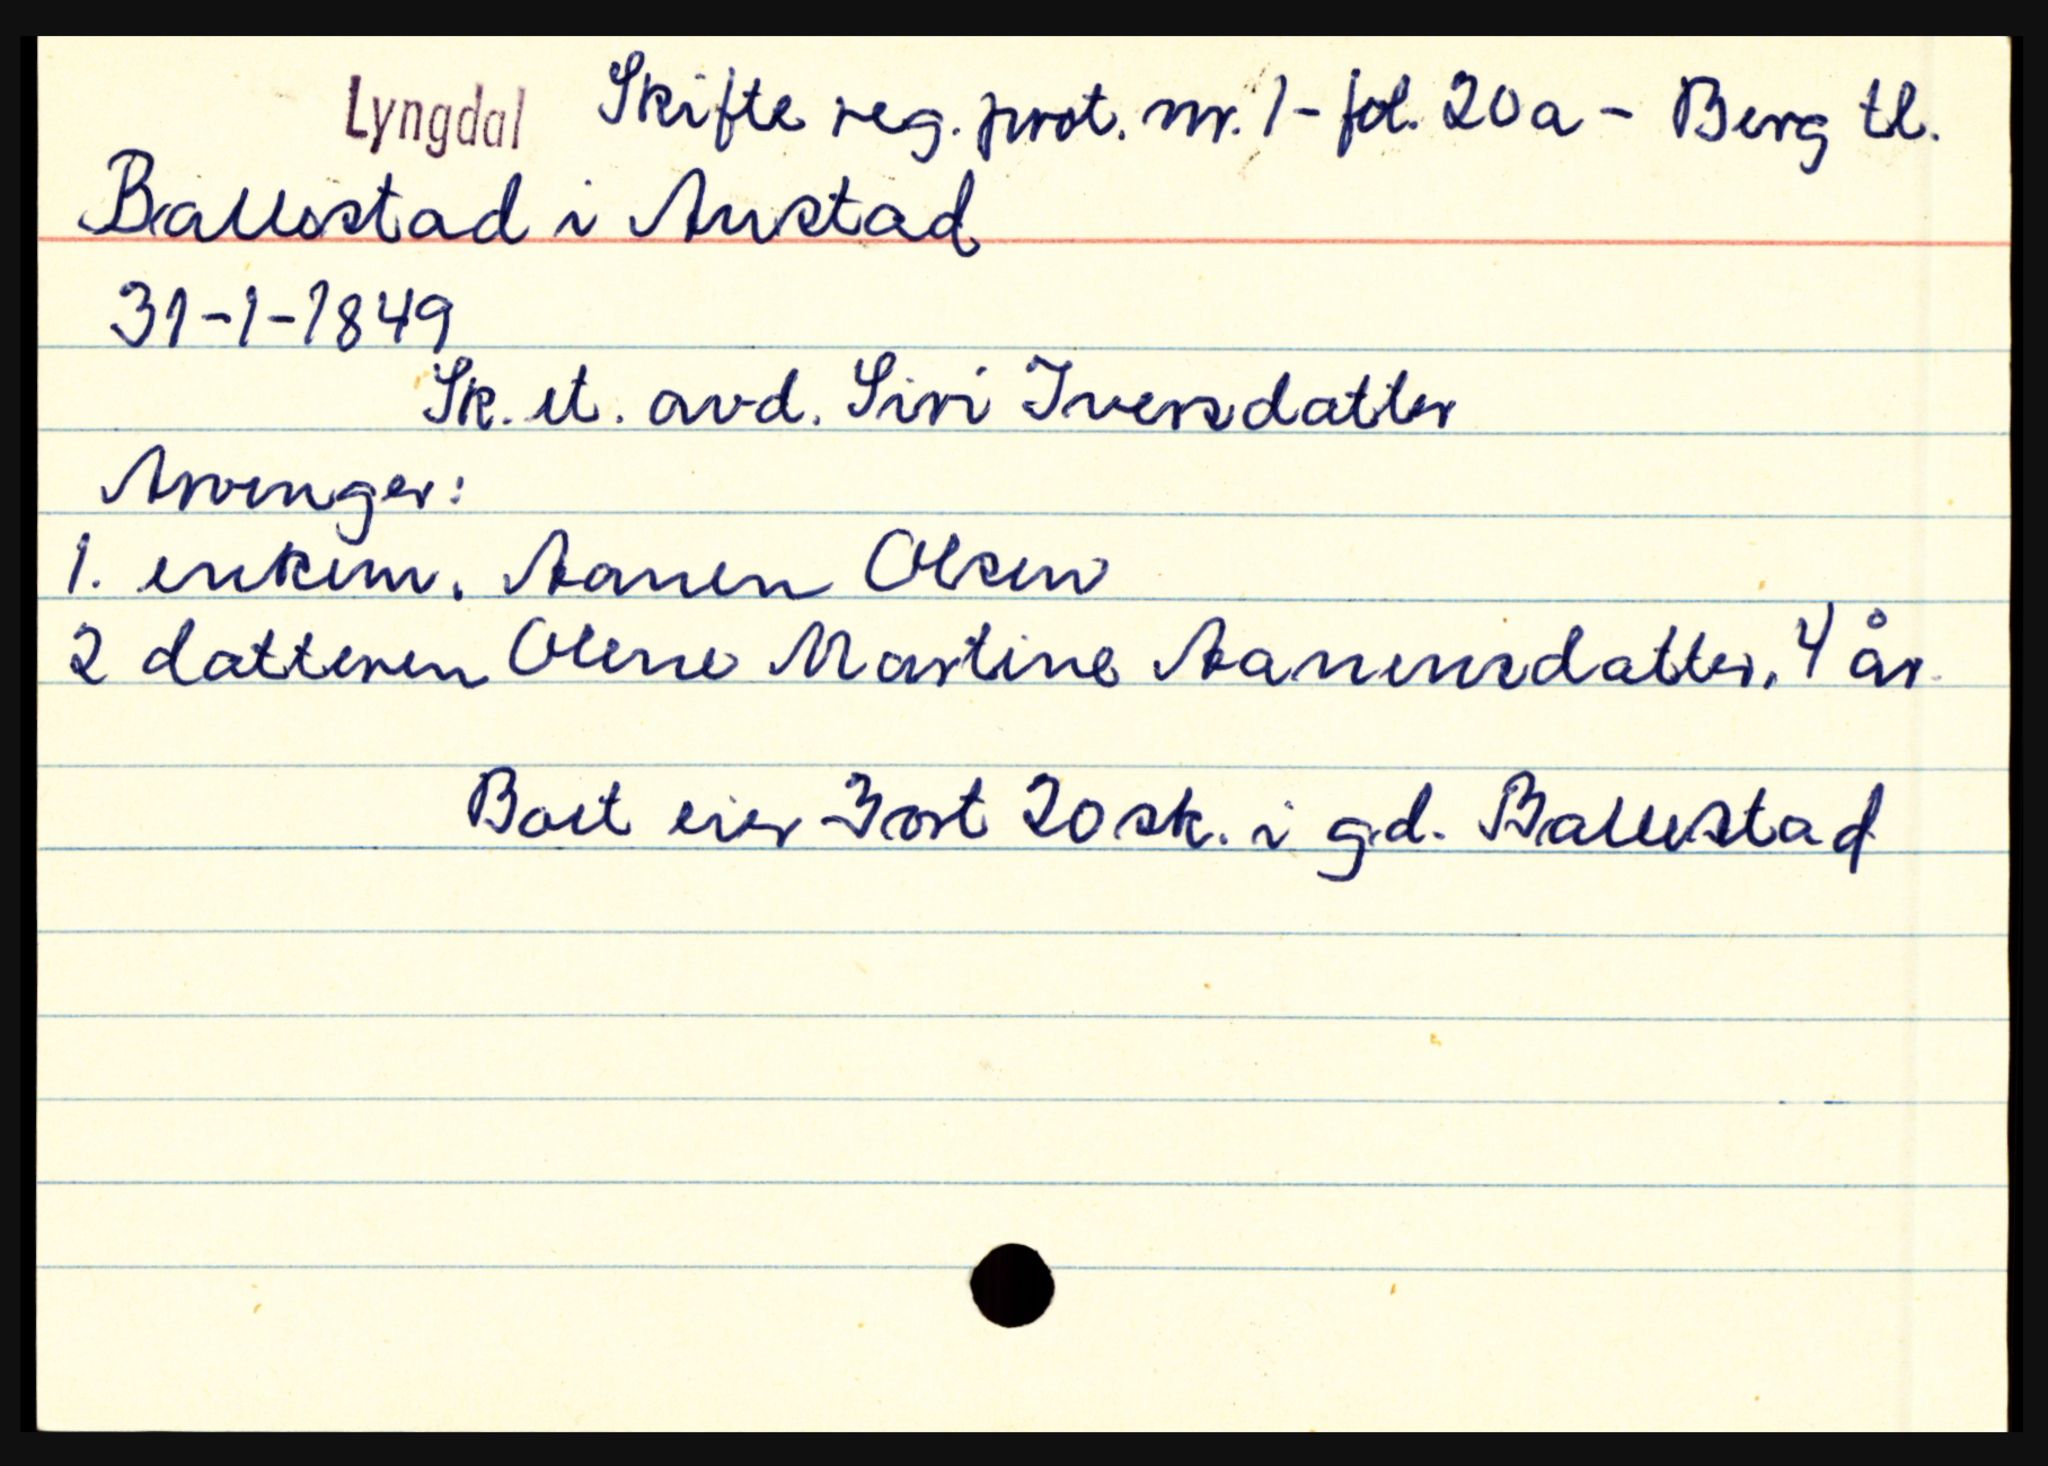 Lyngdal Skifte reg. prot. nr. 1 - fol. 20a - Berg tl.
Ballestad i Austad
31-1-1849
Sk. et. avd. Siri Iversdatter
Arvinger:
1. enkem. Aanen Olsen
2 datteren Olene Martine Aanensdatter, 4 år.
Boet eier 3 ort 20 sk. i gd. Ballestad